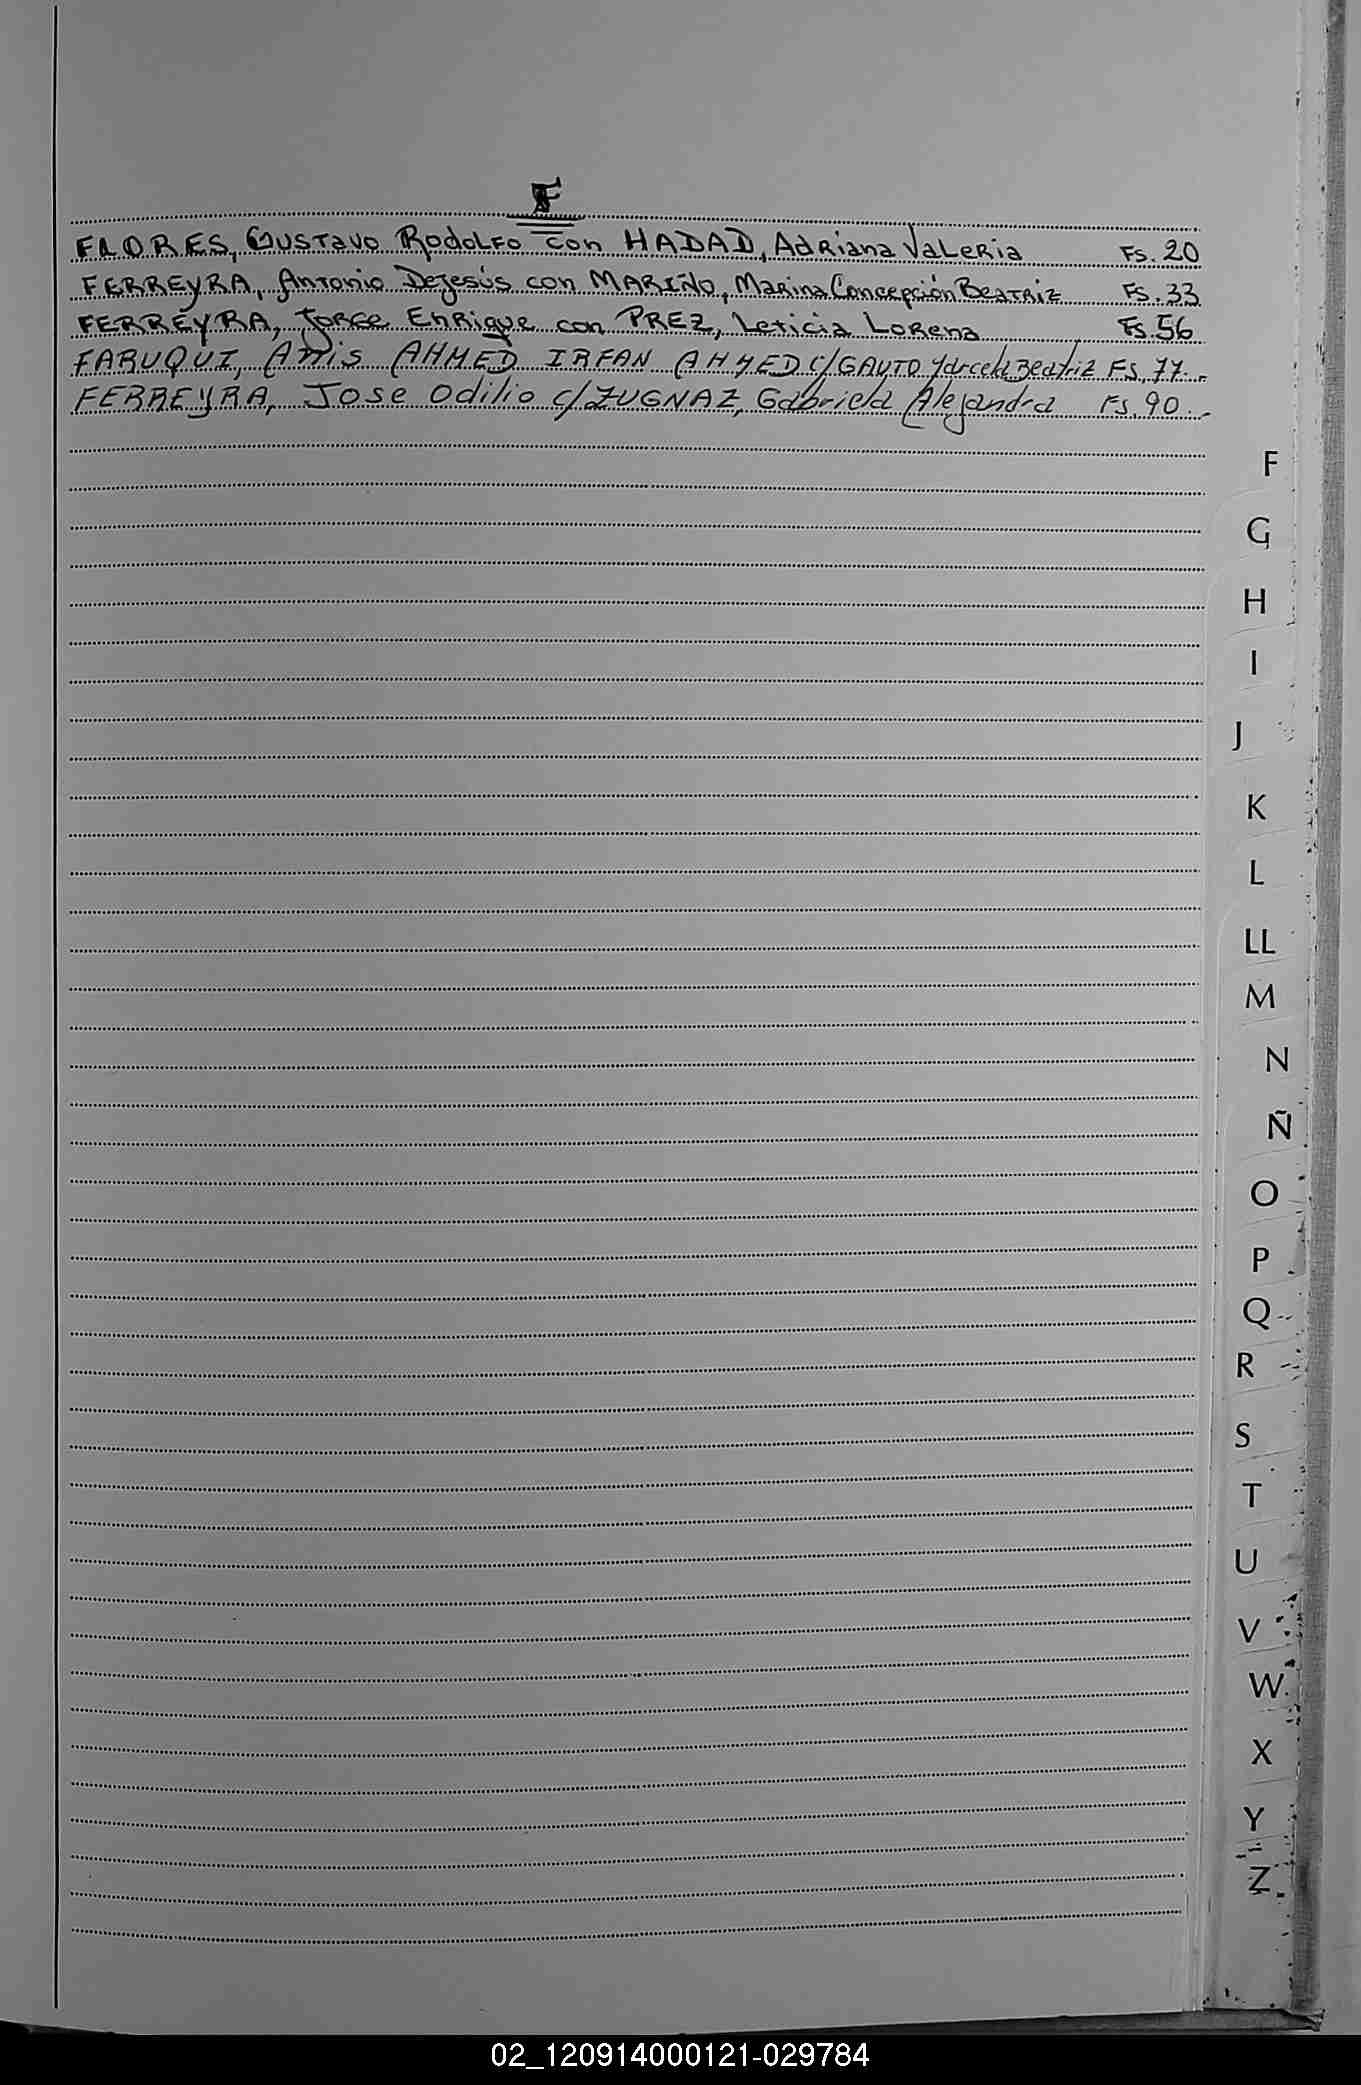 F
FLORES, Gustavo Rodolfo con HADAD, Adriana Valeria Fs. 20
FERREYRA, Antonio Dejesús con MARIÑO, Marina Concepción Beatriz Fs. 33
FERREYRA, Jorge Enrique con PREZ, Leticia Lorena Fs. 56
FARUQUI, Anis AHMED IRFAN AHMED c/ GAUTO Marcela Beatriz Fs. 77
FERREYRA, Jose Odilio c/ ZUGNAZ, Gabriela Alejandra Fs. 90
F
G
H
I
J
K
L
LL
M
N
Ñ
O
P
Q
R
S
T
U
V
W
X
Y
Z
02_120914000121-029784